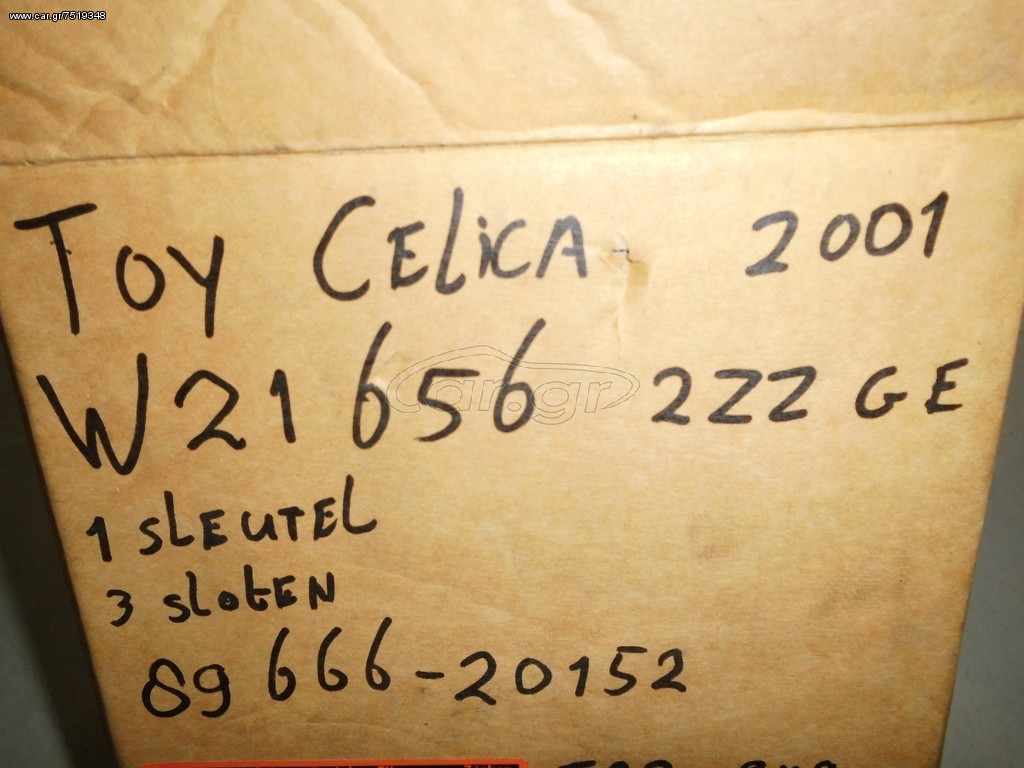 www.car.gr/7519348
TOY CELICA 2001
W21656 2ZZ GE
car.gr
1 SLEUTEL
3 SLOTEN
89666-20152